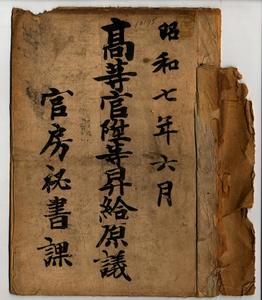 昭和七年六月
高等官陞等昇給原議
官房祕書課